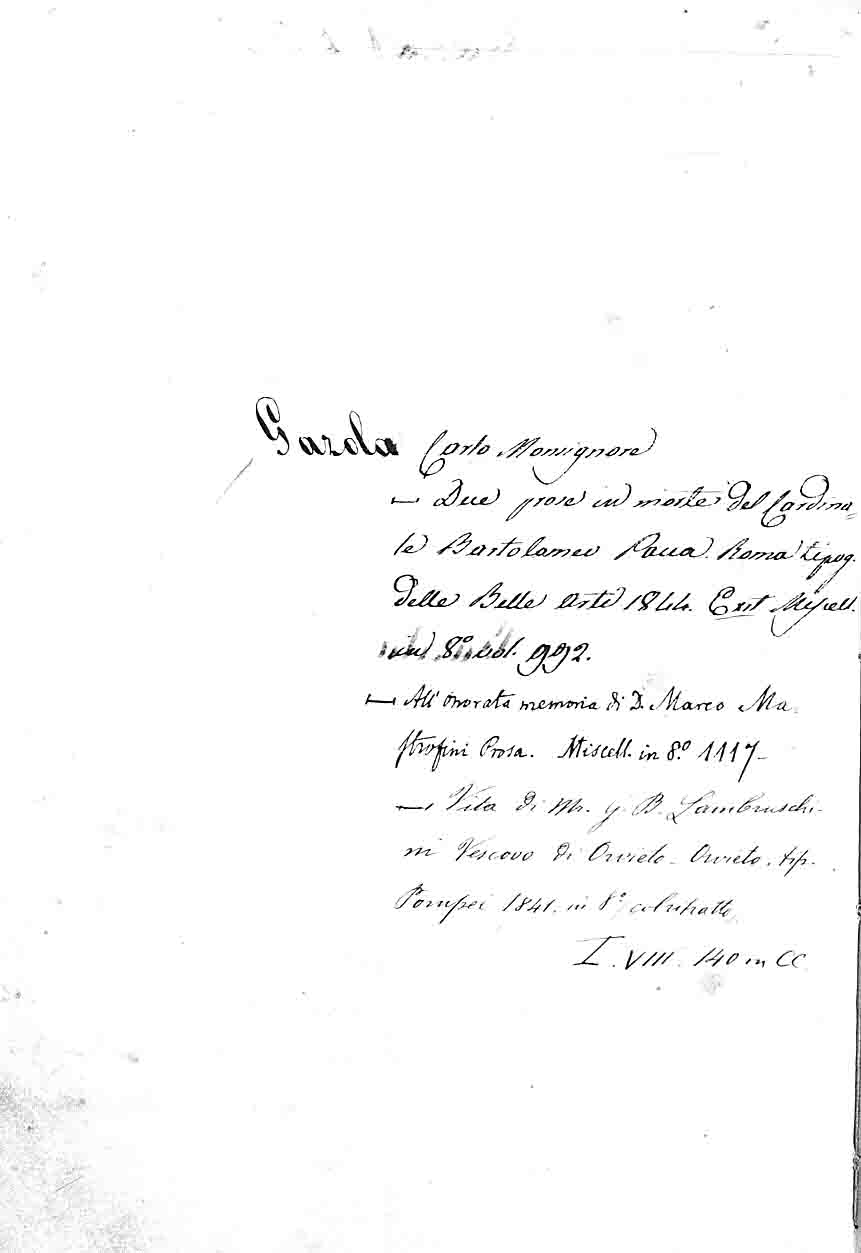 Gazola Carlo Monsignore
— Due prose in morte del Cardina=
le Bartolomeo Pacca. Roma tipog.
delle Belle Arti 1844. Exit Miscell.
in 8.° vol. 992.
— All' onorata memoria di D. Marco Ma-
strofini Prosa. Miscell. in 8.° 1117-
— Vita di Mr. G. B. Lambruschi-
ni Vescovo di Orvieto - Orvieto. tip.
Pompei 1841. in 8.° col ritratto.
I. VIII. 140 in CC